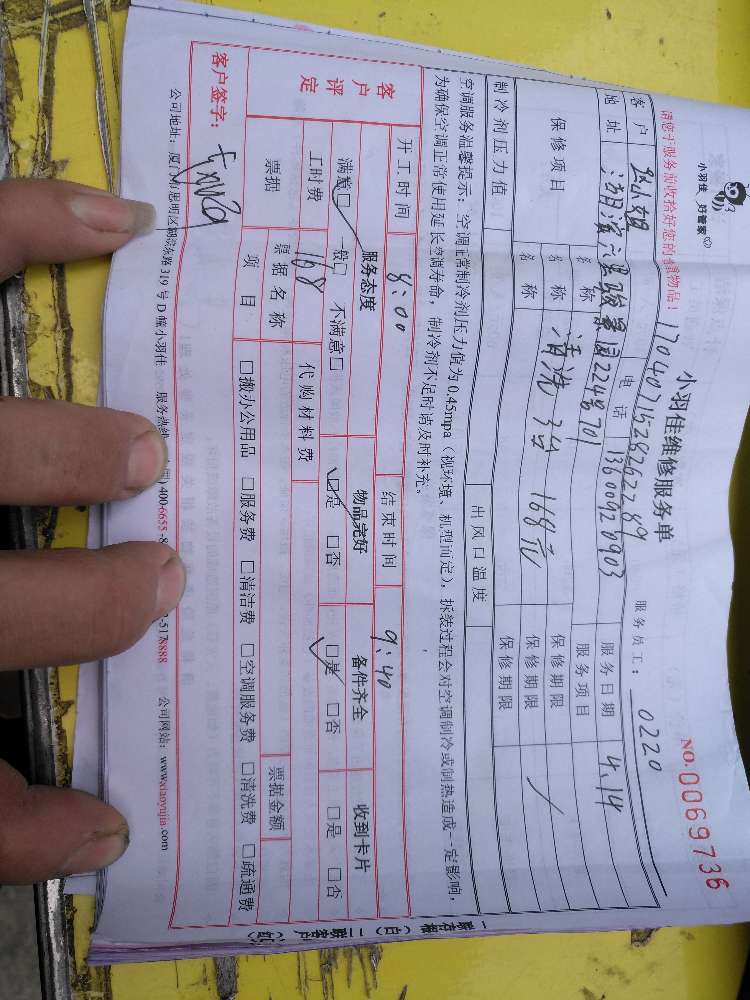 小羽佳 好管家
小羽佳维修服务单
NO.0069736
请您于服务前收拾好您的 物品！
服务员工： 0220
客户 电话 13600920903 服务日期 4.14
地址 服务项目
保修项目 名称 保修期限
名称 清洗3台 168元 保修期限
名称 保修期限
制冷剂压力值 出风口温度
空调服务温馨提示：空调正常制冷剂压力值为0.45mpa（视环境、机型而定），拆装过程会对空调制冷或制热造成一定影响，
为确保空调正常使用延长空调寿命，制冷剂不足时请及时补充。
开工时间 8:00 结束时间 9:40
客户评定 服务态度 物品完好 备件齐全 收到卡片
满意□ 一般□ 不满意□ □是 □否 □是 □否 □是 □否
工时费 168 代购材料费
票据 票据名称 票据金额
项目 □搬办公用品 □服务费 □清洁费 □空调服务费 □清洗费 □疏通费
客户签字：
公司地址：厦门市思明区 东路319号D幢小羽佳 服务热线 400-6655 8888 公司网站：www.xiaoyujia.com